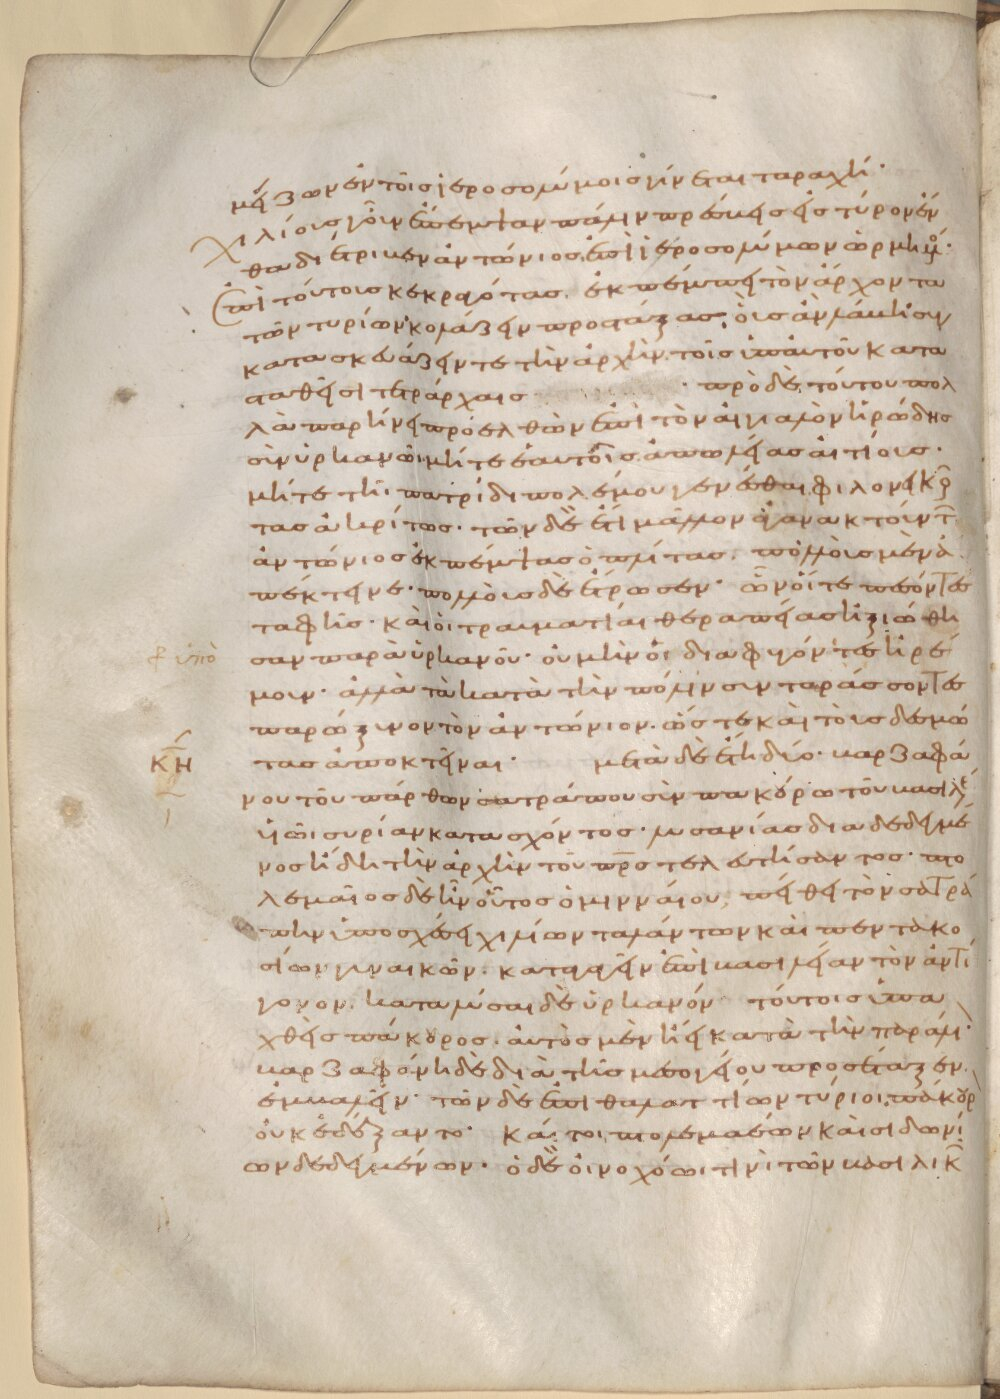 μείζων ἐν τοῖς ἱεροσολύμοις γίνεται ταραχή·
χιλίους γοῦν ἔπεμψαν πάλιν πρέσβεις εἰς τύρον ἔν
θα διέτριβεν ἀντώνιος, ἐπὶ ἱεροσολύμων ὡρμημ·
ἐπὶ τούτους κεκραγότας. ἐκπέμπει τὸν ἄρχοντα
τῶν τυρίων κολάζειν προστάξας, οὓς ἂν λάβηι συγ
κατασκευάζειν τε τὴν ἀρχὴν. τοῖς ὑπαυτοῦ κατα
σταθεῖσι τετράρχαις πρὸ δὲ τούτου πολ
λὰ παρήνει προσελθὼν ἐπὶ τὸν αἰγιαλὸν ἡρώδης
σὺν ὑρκανῶι μήτε ἑαυτοῖς ἀπωλείας αἰτίους.
μήτε τῆι πατρίδι πολέμου γενέσθαι φιλονεικοῦ
τας ἀκρίτως. τῶν δὲ ἔτι μᾶλλον ἀγανακτούντ
ἀντώνιος ἐκπέμψας ὁπλίτας. πολλοὺς μὲν ἀ
πέκτεινε· πολλοὺς δὲ ἔτρωσεν· ὧν οἵ τε πεσόντες
ταφῆς· καὶ οἱ τραυματίαι θεραπείας ἠξιώθη
σαν παρὰ ὑρκανοῦ· οὐ μὴν οἱ διαφυγόντες ἠρέ
μουν· ἀλλὰ τὰ κατὰ τὴν πόλιν συνταράσσοντες
παρώξυνον τὸν ἀντώνιον. ὥστε καὶ τοὺς δεσμώ
τας ἀποκτεῖναι· μετὰ δὲ ἔτη δύο· βαρζαφά
νου τοῦ πάρθων σατράπου σὺν πακόρω τοῦ βασιλέ
υἱῶι συρίαν κατασχόντος· λυσανίας διαδεδεγμέ
νος ἤδη τὴν ἀρχὴν τοῦ πρς τελευτήσαντος· πτο
λεμαῖος δὲ ἦν οὗτος ὁ μινναίου, πείθει τὸν σατρά
πην ὑποσχέσει χιλίων ταλάντων καὶ πεντακο
σίων γυναικῶν. καταγαγεῖν ἐπὶ βασιλείαν τὸν ἀντί
γονον. καταλῦσαι δὲ ὑρκανόν τούτοις ὑπα
χθεὶς πάκορος. αὐτὸς μὲν ἤει κατὰ τὴν παράλι·
βαρζαφάνη δὲ διὰ τῆς μεσογείου προσέταξεν
ἐμβαλεῖν· τῶν δὲ ἐπιθαλαττίων τύριοι πάκορ
οὐκ ἐδέξαντο· καίτοι πτολεμαέων καὶ σιδωνί
ων δεδεγμένων. ὁ δὲ οἰνοχόωι τινὶ τῶν βασιλικ
ὑπὸ
κη